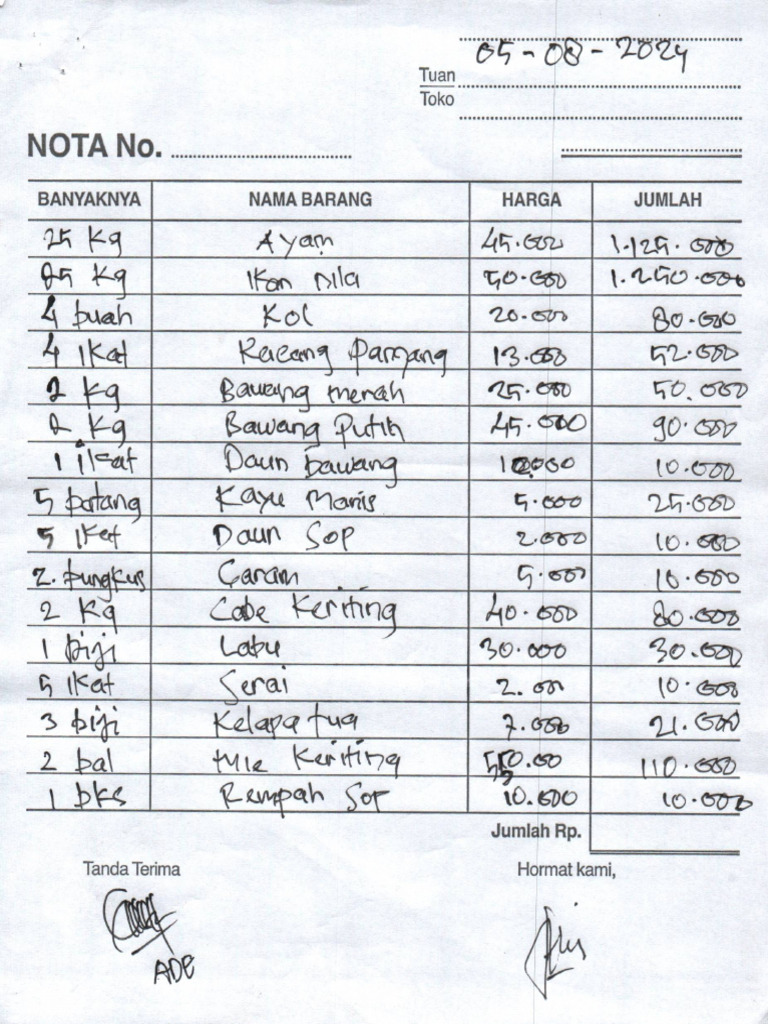 05-08-2024
Tuan
Toko
NOTA No.
BANYAKNYA NAMA BARANG HARGA JUMLAH
25 Kg Ayam 45.000 1.125.000
25 Kg Ikan nila 50.000 1.250.000
4 buah Kol 20.000 80.000
4 Ikat Kacang Panjang 13.000 52.000
2 Kg Bawang merah 25.000 50.000
2 Kg Bawang Putih 45.000 90.000
1 ikat Daun bawang 10.000 10.000
5 batang Kayu Manis 5.000 25.000
5 Ikat Daun Sop 2.000 10.000
2. bungkus Garam 5.000 10.000
2 Kg Cabe Keriting 40.000 80.000
1 biji Labu 30.000 30.000
5 Ikat Serai 2.00 10.000
3 biji Kelapa tua 7.000 21.000
2 bal Mie Keriting 110.000
1 bks Rempah Sop 10.000 10.000
Jumlah Rp.
Tanda Terima Hormat kami,
ADE